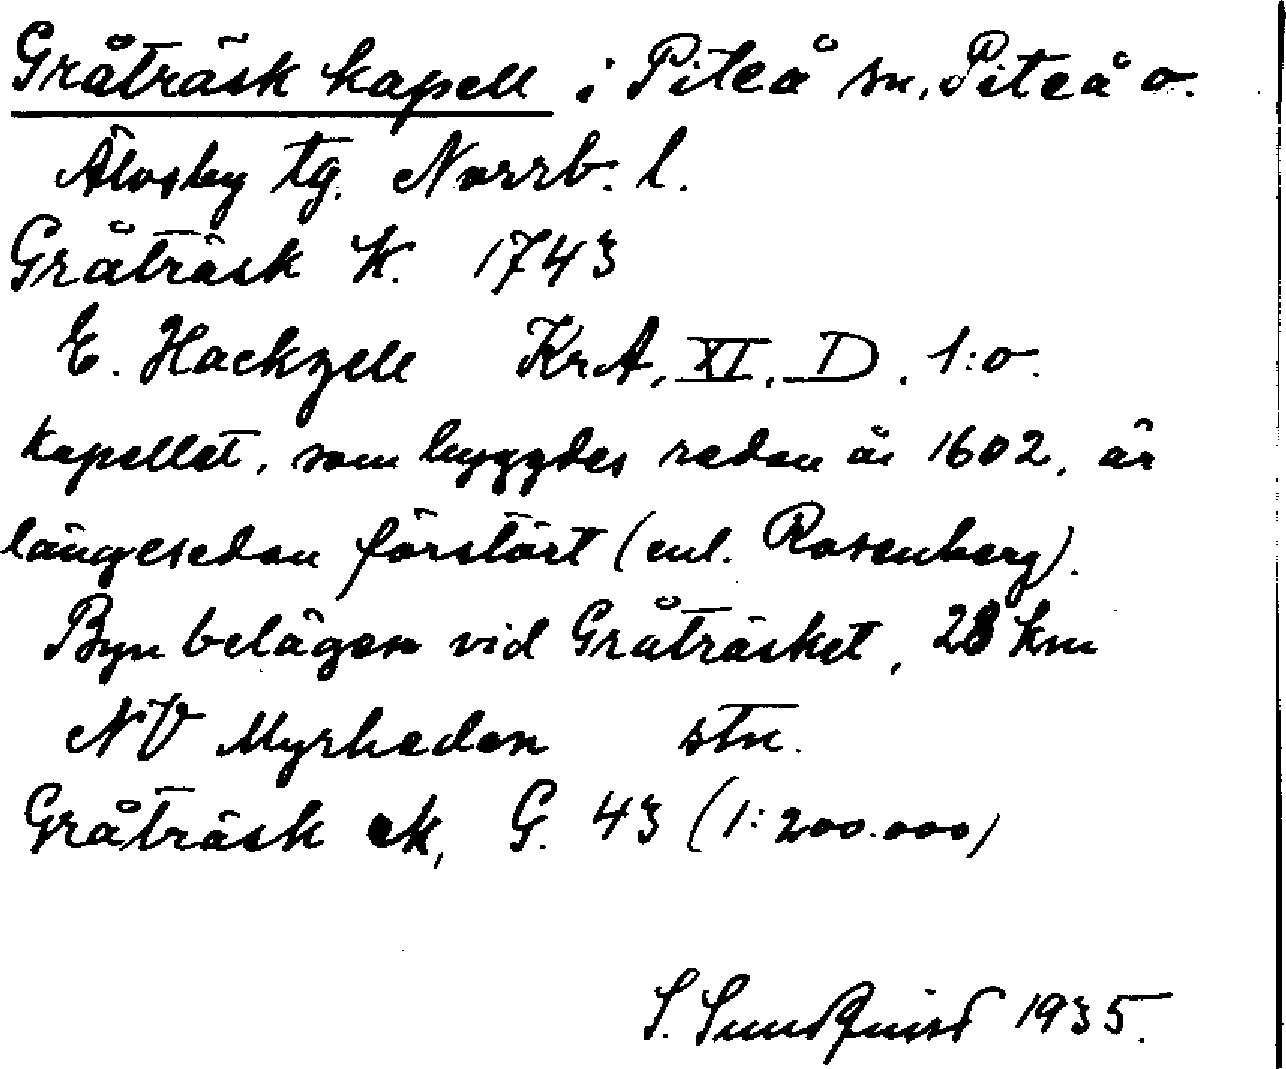 Gråträsk kapell i Piteå sn, Piteå o.
Älvsby tg. Norrb. l.
Gråträsk K. 1743
E. Hackzell KrA, XI, D. 1:o.
Kapellet, som byggdes redan år 1602, är
längesedan förstört (enl. Rosenberg).
Byn belägen vid Gråträsket, 28 km
NV Myrheden stn.
Gråträsk ek, G. 43 (1:200.000)
S. Sundquist 1935.